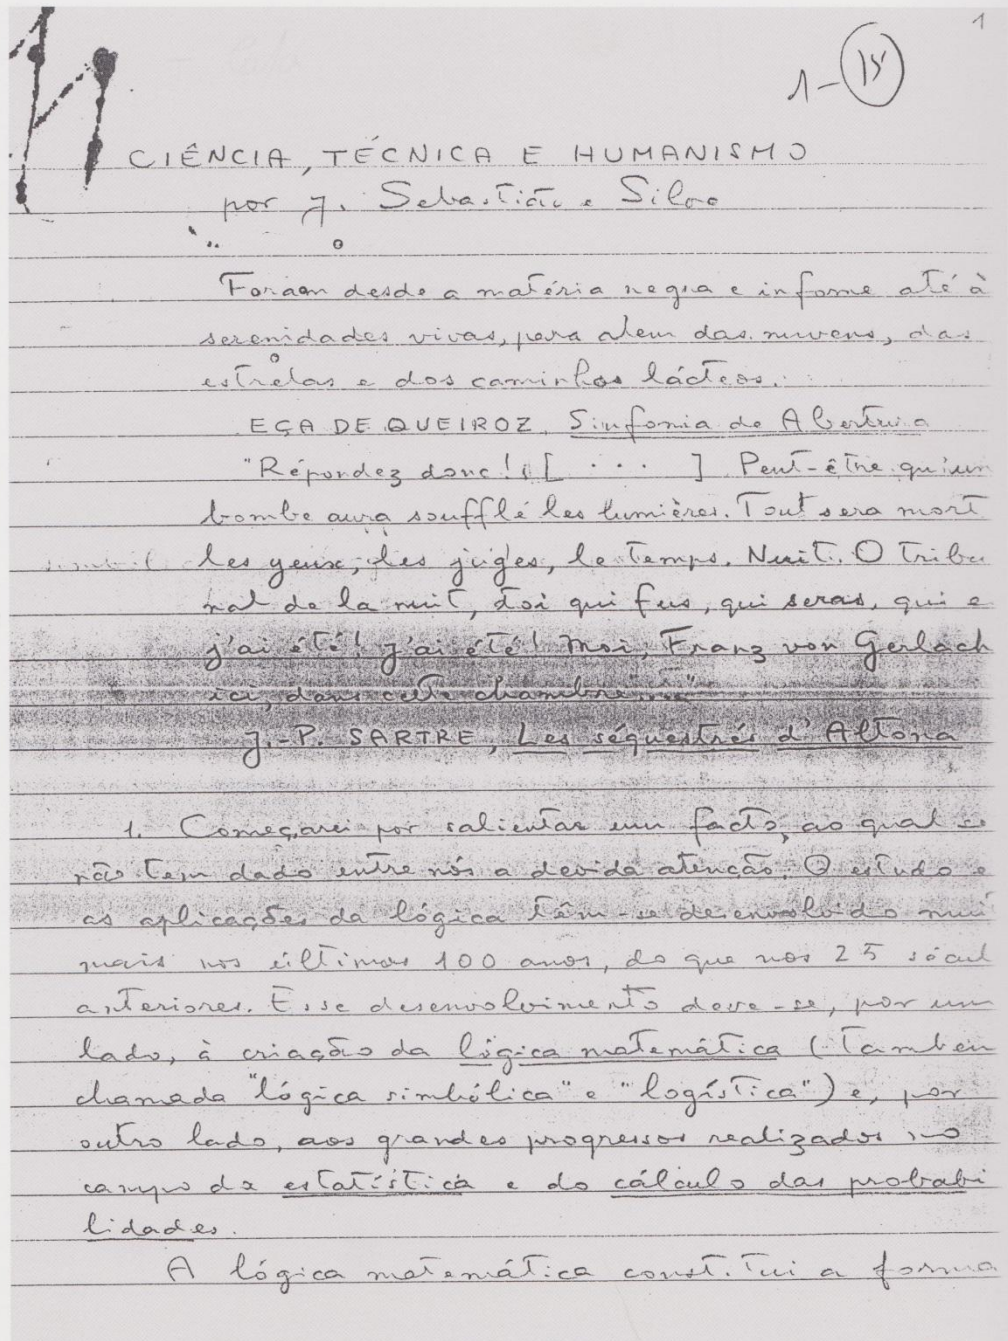 1
1-(15)
CIÊNCIA, TÉCNICA E HUMANISMO
por J. Sebastião e Silva
Foram desde a matéria negra e informe até à
serenidades vivas, para alem das nuvens, das
estrelas e dos caminhos lácteos.
EÇA DE QUEIROZ, Sinfonia de Abertura
"Répondez donc! [ ... ] Peut-être qu'un
bombe aura soufflé les lumières. Tout sera mort
les yeux, les juges, le temps. Nuit. O tribu
nal de la nuit, toi qui fus, qui seras, qui e
j'ai été! j'ai été! Moi, Franz von Gerlach
ici, dans cette chambre..."
J.-P. SARTRE, Les séquestrés d'Altona
1. Começarei por salientar um facto, ao qual se
não tem dado entre nós a devida atenção. O estudo e
as aplicações da lógica têm-se desenvolvido mui
mais nos últimos 100 anos, do que nos 25 sécul
anteriores. Esse desenvolvimento deve-se, por um
lado, à criação da lógica matemática (também
chamada "lógica simbólica" e "logística") e, por
outro lado, aos grandes progressos realizados no
campo da estatística e do cálculo das probabi
lidades.
A lógica matemática constitui a forma